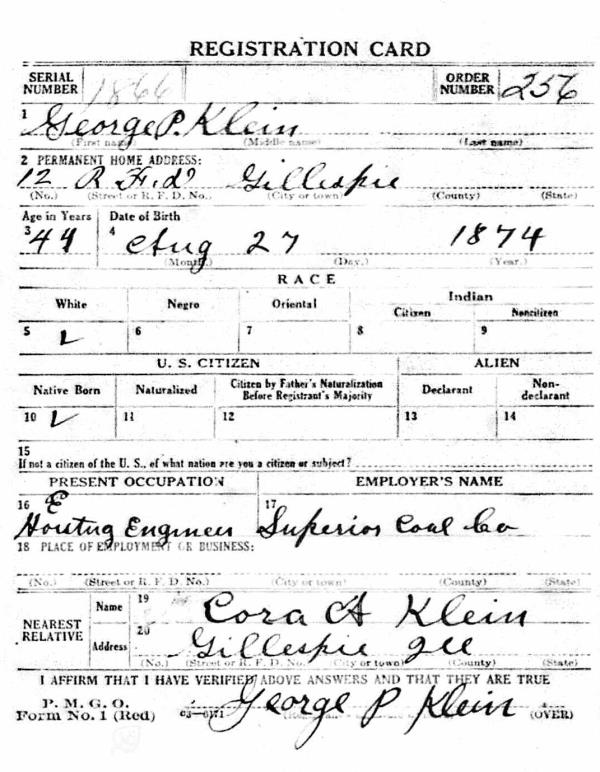 REGISTRATION CARD
SERIAL NUMBER 1866 ORDER NUMBER 256
1 George P. Klein
(First name) (Middle name) (Last name)
2 PERMANENT HOME ADDRESS:
12 R. F. d. Gillespie
(No.) (Street or R. F. D. No.) (City or town) (County) (State)
Age in Years Date of Birth
3 44 4 Aug 27 1874
(Month.) (Day.) (Year.)
RACE
White Negro Oriental Indian
Citizen Noncitizen
5 6 7 8 9
U. S. CITIZEN ALIEN
Native Born Naturalized Citizen by Father's Naturalization Before Registrant's Majority Declarant Non-declarant
10 11 12 13 14
15
If not a citizen of the U. S., of what nation are you a citizen or subject?
PRESENT OCCUPATION EMPLOYER'S NAME
16 E 17
Engineer Superior Coal Co
18 PLACE OF EMPLOYMENT OR BUSINESS:
(No.) (Street or R. F. D. No.) (City or town) (County) (State)
NEAREST RELATIVE Name 19 Cora A Klein
Address 20 Gillespie Ill
(No.) (Street or R. F. D. No.) (City or town) (County) (State)
I AFFIRM THAT I HAVE VERIFIED ABOVE ANSWERS AND THAT THEY ARE TRUE
P. M. G. O.
Form No. 1 (Red) George P Klein (OVER)